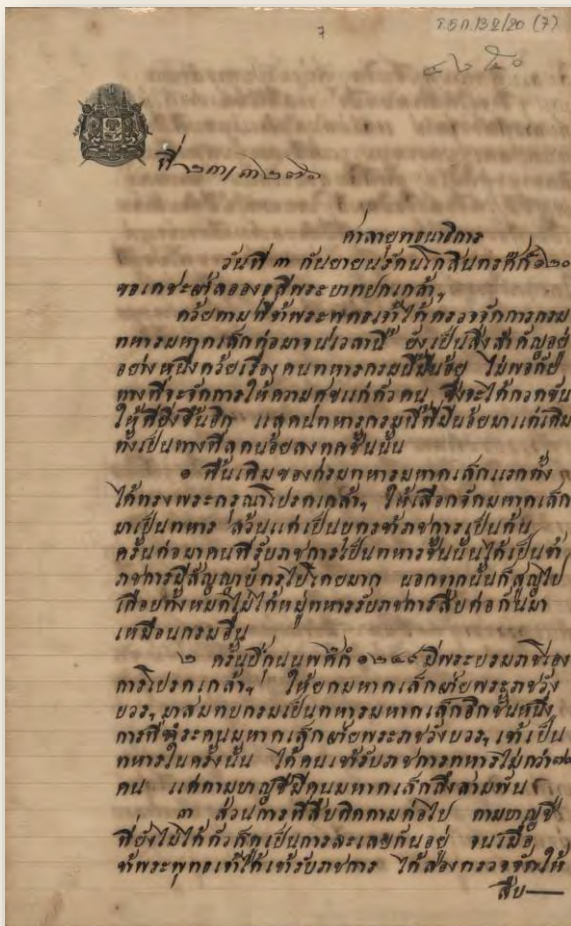 7
ร.5 ก.132/20 (7)
ที่ ๒๓/๓๒๗๖
ศาลายุทธนาธิการ
วันที่ ๓ กันยายน รัตนโกสินทรศก ๑๒๐
ขอเดชะฝ่าลอองธุลีพระบาทปกเกล้าฯ
ด้วยตามที่ข้าพระพุทธเจ้าได้ตรวจจัดการกรม
ทหารมหาดเล็กต่อมาจนเวลานี้ ยังเป็นสิ่งสำคัญอยู่
อย่างหนึ่งด้วยเรื่องคนทหารกรมนี้มีน้อย ไม่พอกับ
ทางที่จะจัดการให้ความศุขแก่ตัวคน ซึ่งจะได้กวดขัน
ให้ดียิ่งขึ้นอีก แลคนทหารกรมนี้ที่มีน้อยมาแต่เดิม
ทั้งเป็นทางที่ลดน้อยลงทุกชั้นนั้น
๑ พื้นเดิมของกรมทหารมหาดเล็กแรกตั้ง
ได้ทรงพระกรุณาโปรดเกล้าฯ ให้เลือกจัดมหาดเล็ก
มาเป็นทหาร ล้วนแต่เป็นบุตรข้าราชการเป็นต้น
ครั้นต่อมาคนที่รับราชการเป็นทหารชั้นนั้นได้เป็นข้า
ราชการมีสัญญาบัตรไปโดยมาก นอกจากนั้นก็สูญไป
เกือบทั้งหมดไม่ได้หมู่ทหารรับราชการสืบต่อกันมา
เหมือนกรมอื่น
๒ ครั้นปีกุนนพศก ๑๒๔๙ มีพระบรมราชโอง
การโปรดเกล้าฯ ให้ยกมหาดเล็กฝ่ายพระราชวัง
บวรฯ มาสมทบกรมเป็นทหารมหาดเล็กอีกชั้นหนึ่ง
การที่ชำระคนมหาดเล็กฝ่ายพระราชวังบวรฯ เข้าเป็น
ทหารในครั้งนั้น ได้คนเข้ารับราชการทหารไม่กว่า
คน แต่ตามบาญชีมีคนมหาดเล็กถึงสามพัน
๓ ส่วนการที่สืบติดตามต่อไป ตามบาญชี
ที่ยังไม่ได้ตัวก็ดเป็นการละเลยกันอยู่ จนเมื่อ
ข้าพระพุทธเจ้าได้เข้ารับราชการ ได้สอบตรวจจัดให้
สืบ—